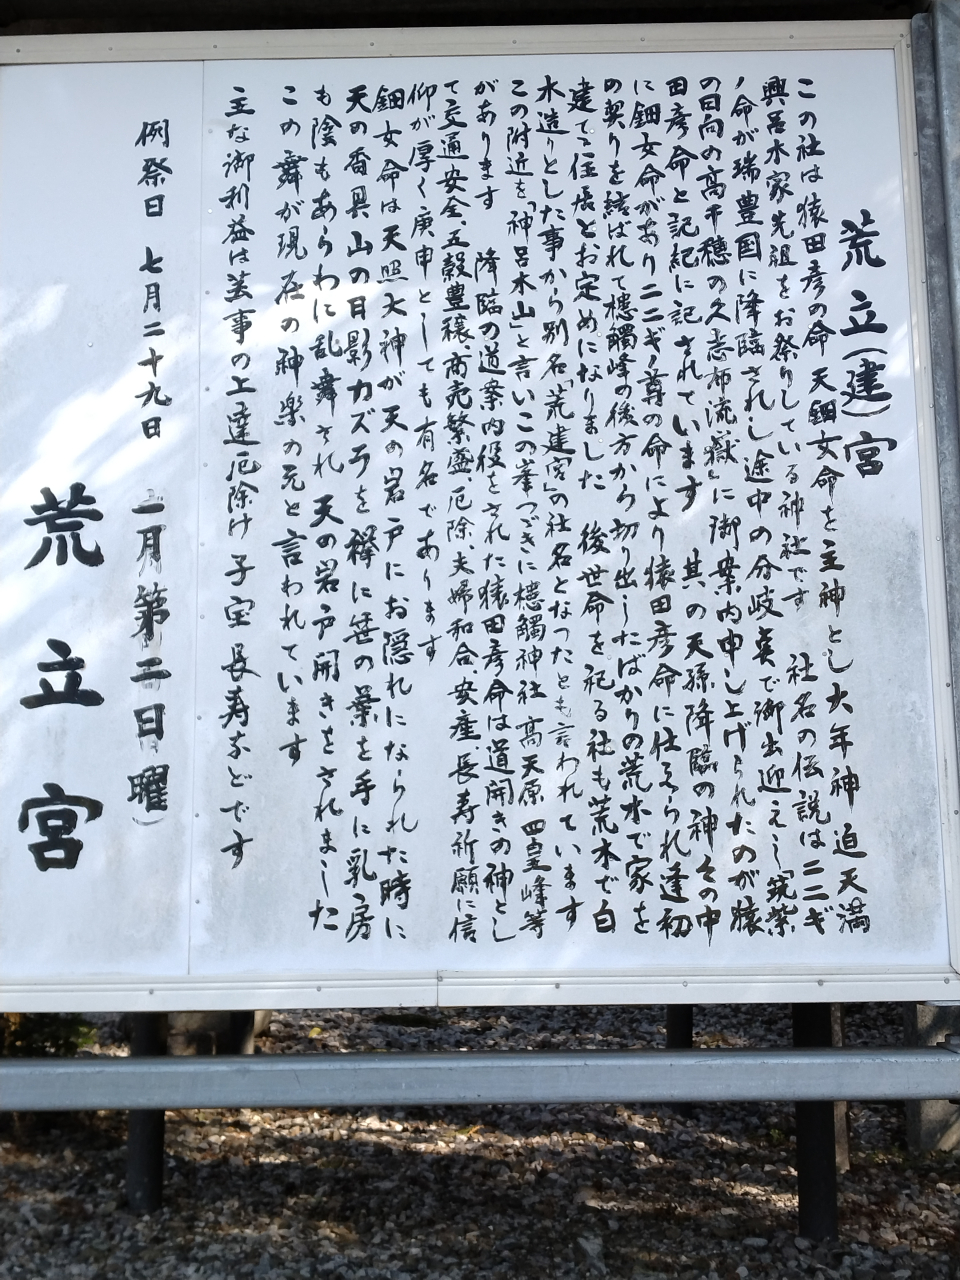 荒立(建)宮
この社は猿田彦の命天鈿女命を主神とし大年神 迫天満
興呂木家先祖をお祭りしている神社です 社名の伝説はニニギ
ノ命が瑞豊国に降臨されし途中の分岐奌で御出迎えし「筑紫
の日向の高千穂の久志布流嶽」に御案内申し上げられたのが猿
田彦命と記紀に記されています 其の天孫降臨の神々の中
に鈿女命があり ニニギノ尊の命により猿田彦命に仕えられ逢初
の契りを結ばれて槵觸峰の後方から切り出したばかりの荒木で家を
建てて住居とお定めになりました 後世命を祀る社も荒木で白
木造りとした事から別名「荒建宮」の社名となったとも言われています
この附近を「神呂木山」と言いこの峯つづきに槵觸神社 高天原 四皇峰等
があります 降臨の道案内役をされた猿田彦命は道開きの神とし
て交通安全、五穀豊穣、商売繁盛、厄除、夫婦和合、安産長寿祈願に信
仰が厚く庚申としても有名であります
鈿女命は天照大神が天の岩戸にお隠れになられた時に
天の香具山の日影カズラを襷に笹の葉を手に乳房
も陰もあらわに乱舞され 天の岩戸開きをされました
この舞が現在の神楽の元と言われています
主な御利益は芸事の上達厄除け子宝長寿などです
例祭日 七月二十九日 二月第二日曜)
荒立宮